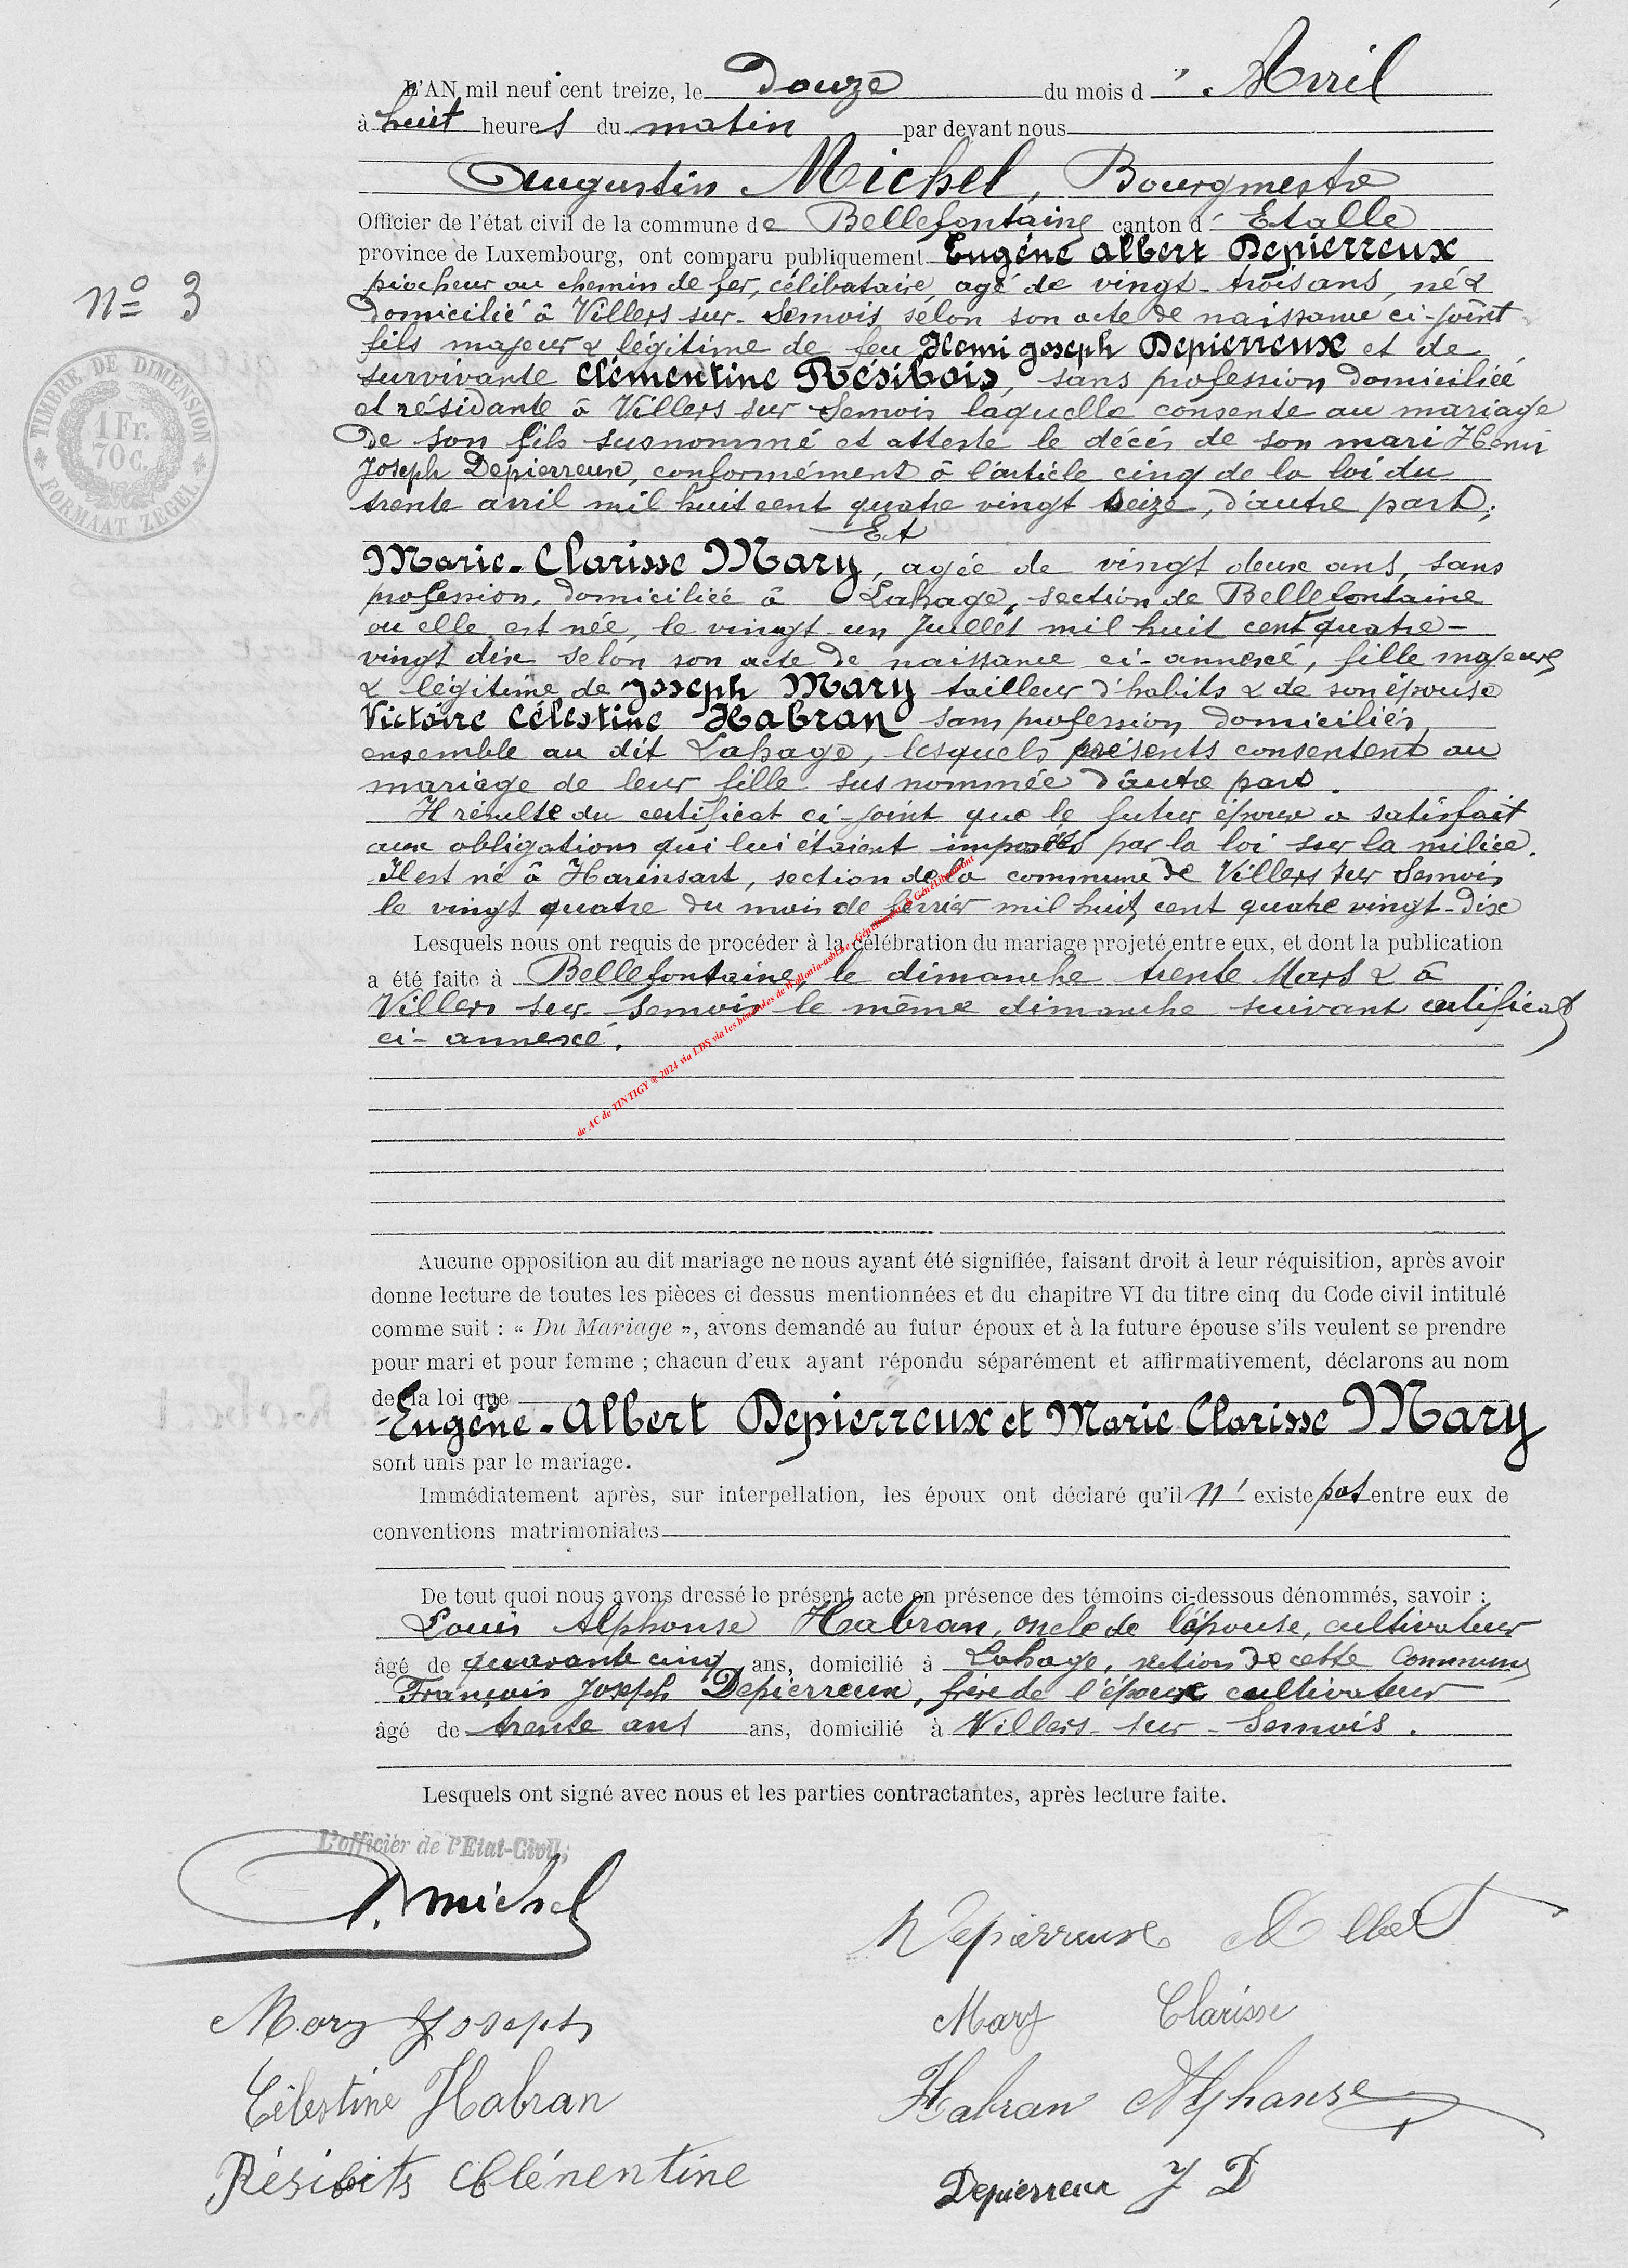 L'AN mil neuf cent treize, le Douze du mois d' Avril
à huit heures du matin par devant nous
Augustin Michel, Bourgmestre
Officier de l'état civil de la commune de Bellefontaine canton d' Etalle
province de Luxembourg, ont comparu publiquement Eugène Albert Depierreux
piocheur au chemin de fer, célibataire, agé de vingt-trois ans, né &
domicilié à Villers sur-Semois selon son acte de naissance ci-joint
fils majeur & légitime de feu Henri Joseph Depierreux et de
survivante Clémentine Résibois, sans profession domiciliée
et résidante à Villers sur Semois laquelle consente au mariage
de son fils susnommé et atteste le décés de son mari Henri
Joseph Depierreux, conformément à l'article cinq de la loi du
trente avril mil huit cent quatre vingt seize, d'autre part;
Et
Marie-Clarisse Mary, agée de vingt deux ans, sans
profession, domiciliée à Lahage, section de Bellefontaine
ou elle est née, le vingt-un Juillet mil huit cent quatre-
vingt dix selon son acte de naissance ci-annexé, fille majeure
& légitime de Joseph Mary tailleur d'habits & de son épouse
Victoire Célestine Habran sans profession domiciliés
ensemble au dit Lahage, lesquels présents consentent au
mariage de leur fille sus nommée d'autre part.
Il résulte du certificat ci-joint que le futur époux a satisfait
aux obligations qui lui étaient imposées par la loi sur la milice.
Il est né à Harinsart, section de la commune de Villers sur Semois
le vingt quatre du mois de février mil huit cent quatre vingt-dix
Lesquels nous ont requis de procéder à la célébration du mariage projeté entre eux, et dont la publication
a été faite à Bellefontaine, le dimanche trente Mars & à
Villers sur-Semois le même dimanche suivant certificat
ci-annexé.
de AC de TINTIGY ® 2024 via LDS via les bénévoles de Wallonia-asbl.be
N° 3
TIMBRE DE DIMENSION
1 Fr.
70 C.
FORMAAT ZEGEL
Aucune opposition au dit mariage ne nous ayant été signifiée, faisant droit à leur réquisition, après avoir
donne lecture de toutes les pièces ci dessus mentionnées et du chapitre VI du titre cinq du Code civil intitulé
comme suit : « Du Mariage », avons demandé au futur époux et à la future épouse s'ils veulent se prendre
pour mari et pour femme ; chacun d'eux ayant répondu séparément et affirmativement, déclarons au nom
de la loi que
Eugène-Albert Depierreux et Marie Clarisse Mary
sont unis par le mariage.
Immédiatement après, sur interpellation, les époux ont déclaré qu'il n' existe pas entre eux de
conventions matrimoniales
De tout quoi nous avons dressé le présent acte en présence des témoins ci-dessous dénommés, savoir :
Louis Alphonse Habran, oncle de l'épouse, cultivateur
âgé de quarante cinq ans, domicilié à Lahage, section de cette Commune
François Joseph Depierreux, frère de l'époux cultivateur
âgé de trente ans ans, domicilié à Villers-sur-Semois.
Lesquels ont signé avec nous et les parties contractantes, après lecture faite.
L'officier de l'Etat-Civil,
A. Michel
Depierreux Albert
Mary Joseph
Mary Clarisse
Célestine Habran
Habran Alphonse
Résibois Clénentine
Depierreux J D